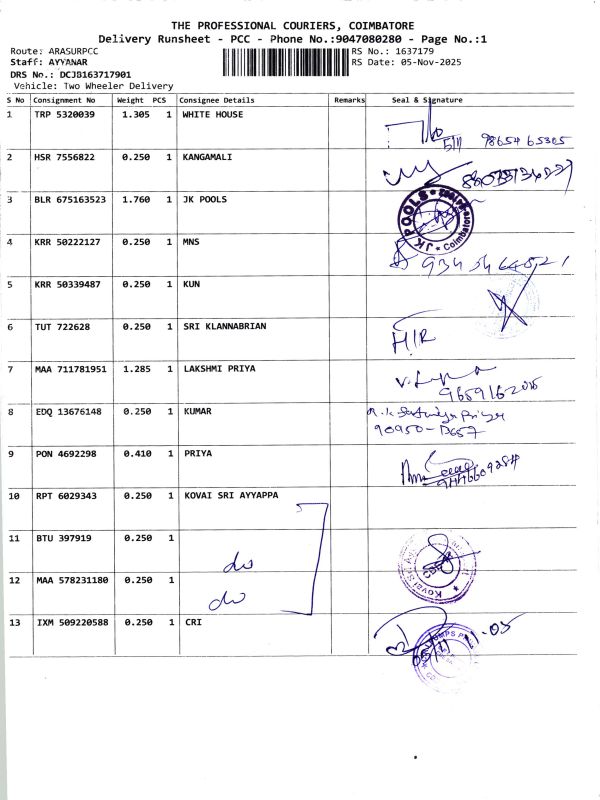 THE PROFESSIONAL COURIERS, COIMBATORE
Delivery Runsheet - PCC - Phone No.:9047080280 - Page No.:1
Route: ARASURPCC RS No.: 1637179
Staff: AYYANAR RS Date: 05-Nov-2025
DRS No.: DCJB163717901
Vehicle: Two Wheeler Delivery
S No Consignment No Weight PCS Consignee Details Remarks Seal & Signature
1 TRP 5320039 1.305 1 WHITE HOUSE
5/11 98654 65305
2 HSR 7556822 0.250 1 KANGAMALI
3 BLR 675163523 1.760 1 JK POOLS
JK POOLS * Coimbatore
4 KRR 50222127 0.250 1 MNS
5 KRR 50339487 0.250 1 KUN
6 TUT 722628 0.250 1 SRI KLANNABRIAN
H/R
7 MAA 711781951 1.285 1 LAKSHMI PRIYA
8 EDQ 13676148 0.250 1 KUMAR
90950-13657
9 PON 4692298 0.410 1 PRIYA
10 RPT 6029343 0.250 1 KOVAI SRI AYYAPPA
11 BTU 397919 0.250 1
do
12 MAA 578231180 0.250 1
do
13 IXM 509220588 0.250 1 CRI